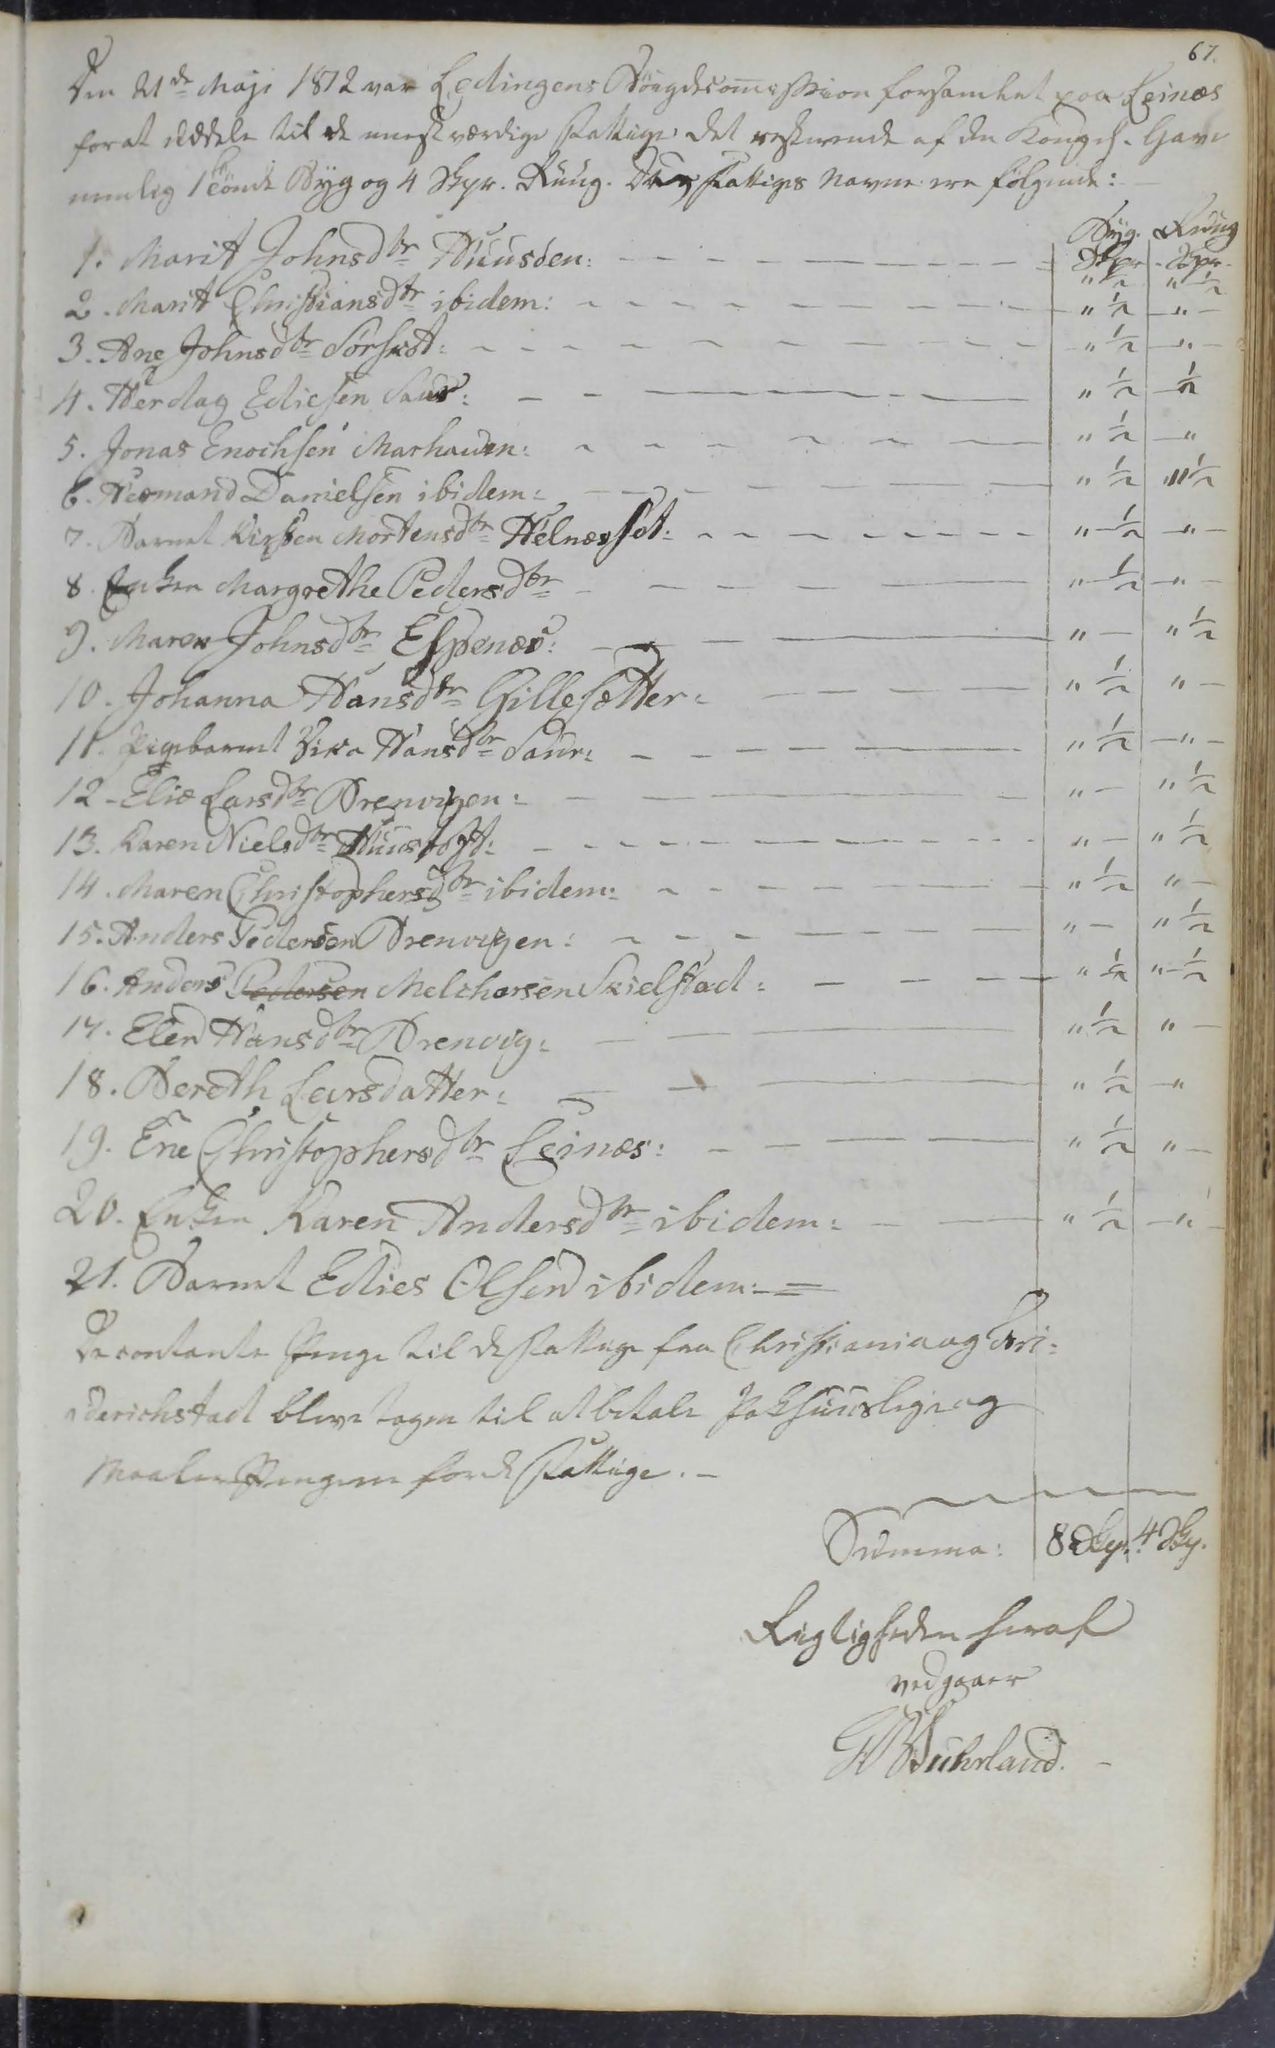 67.
Den 21de Maji 1812 var Lødingens Bøigdecom̄ission forsamlet paa Leinæs
for at uddele til de meest værdige fattige det resterende af den Kongel. Gave
nemlig 1 Tønde Byg og 4 Skpr. Ruug. De fattiges Navne ere følgende:
Byg. Ruug
Skpr. Skpr.
1. Marit Johnsdtr Huusøen: " ½ " ½
2. Marit Christiansdtr ibidem: " ½ - " -
3. Ane Johnsdtr Sørset: " ½ - " -
4. Herdag Ediesen Saur: " ½ ½
5. Jonas Enochsen Marhauen: " ½ - "
6. Normand Danielsen ibidem: " ½ " ½
7. Barnet Kirsten Mortensdtr Helnesset: " ½ - " -
8. Enken Margrethe Pedersdtr " ½ - " -
9. Maren Johnsdtr Espenæs: " - " ½
10. Johanna Hansdtr Gillesætter: " ½ " -
11. Pigebarnet Hansdtr Saur: " ½ - " -
12 - Elie Larsdtr Drenvigen: " - " ½
13. Karen Nielsdtr Huustoft: " - " ½
14. Maren Christophersdtr ibidem: " ½ " -
15. Anders Pedersen Drenvigen: " - " ½
16. Anders Pedersen Melchersen Skielstad: " ½ " ½
17. Elen Hansdtr Drenvig: " ½ " -
18. Bereth Larsdatter: " ½ - "
19. Ene Christophersdtr Leinæs: " ½ " -
20. Enken Karen Andersdtr ibidem: " ½ - " -
21. Barnet Edies Olsen ibidem: =
De contante Penge til de fattige fra Christiania og Fri-
derichstad bleve tagne til at betale Pakhuusleje og
Maaler Pengene for de fattige. -
Summa: 8 Skp. 4 Skp.
Rigtigheden heraf
vedgaaer
Buhrland. -